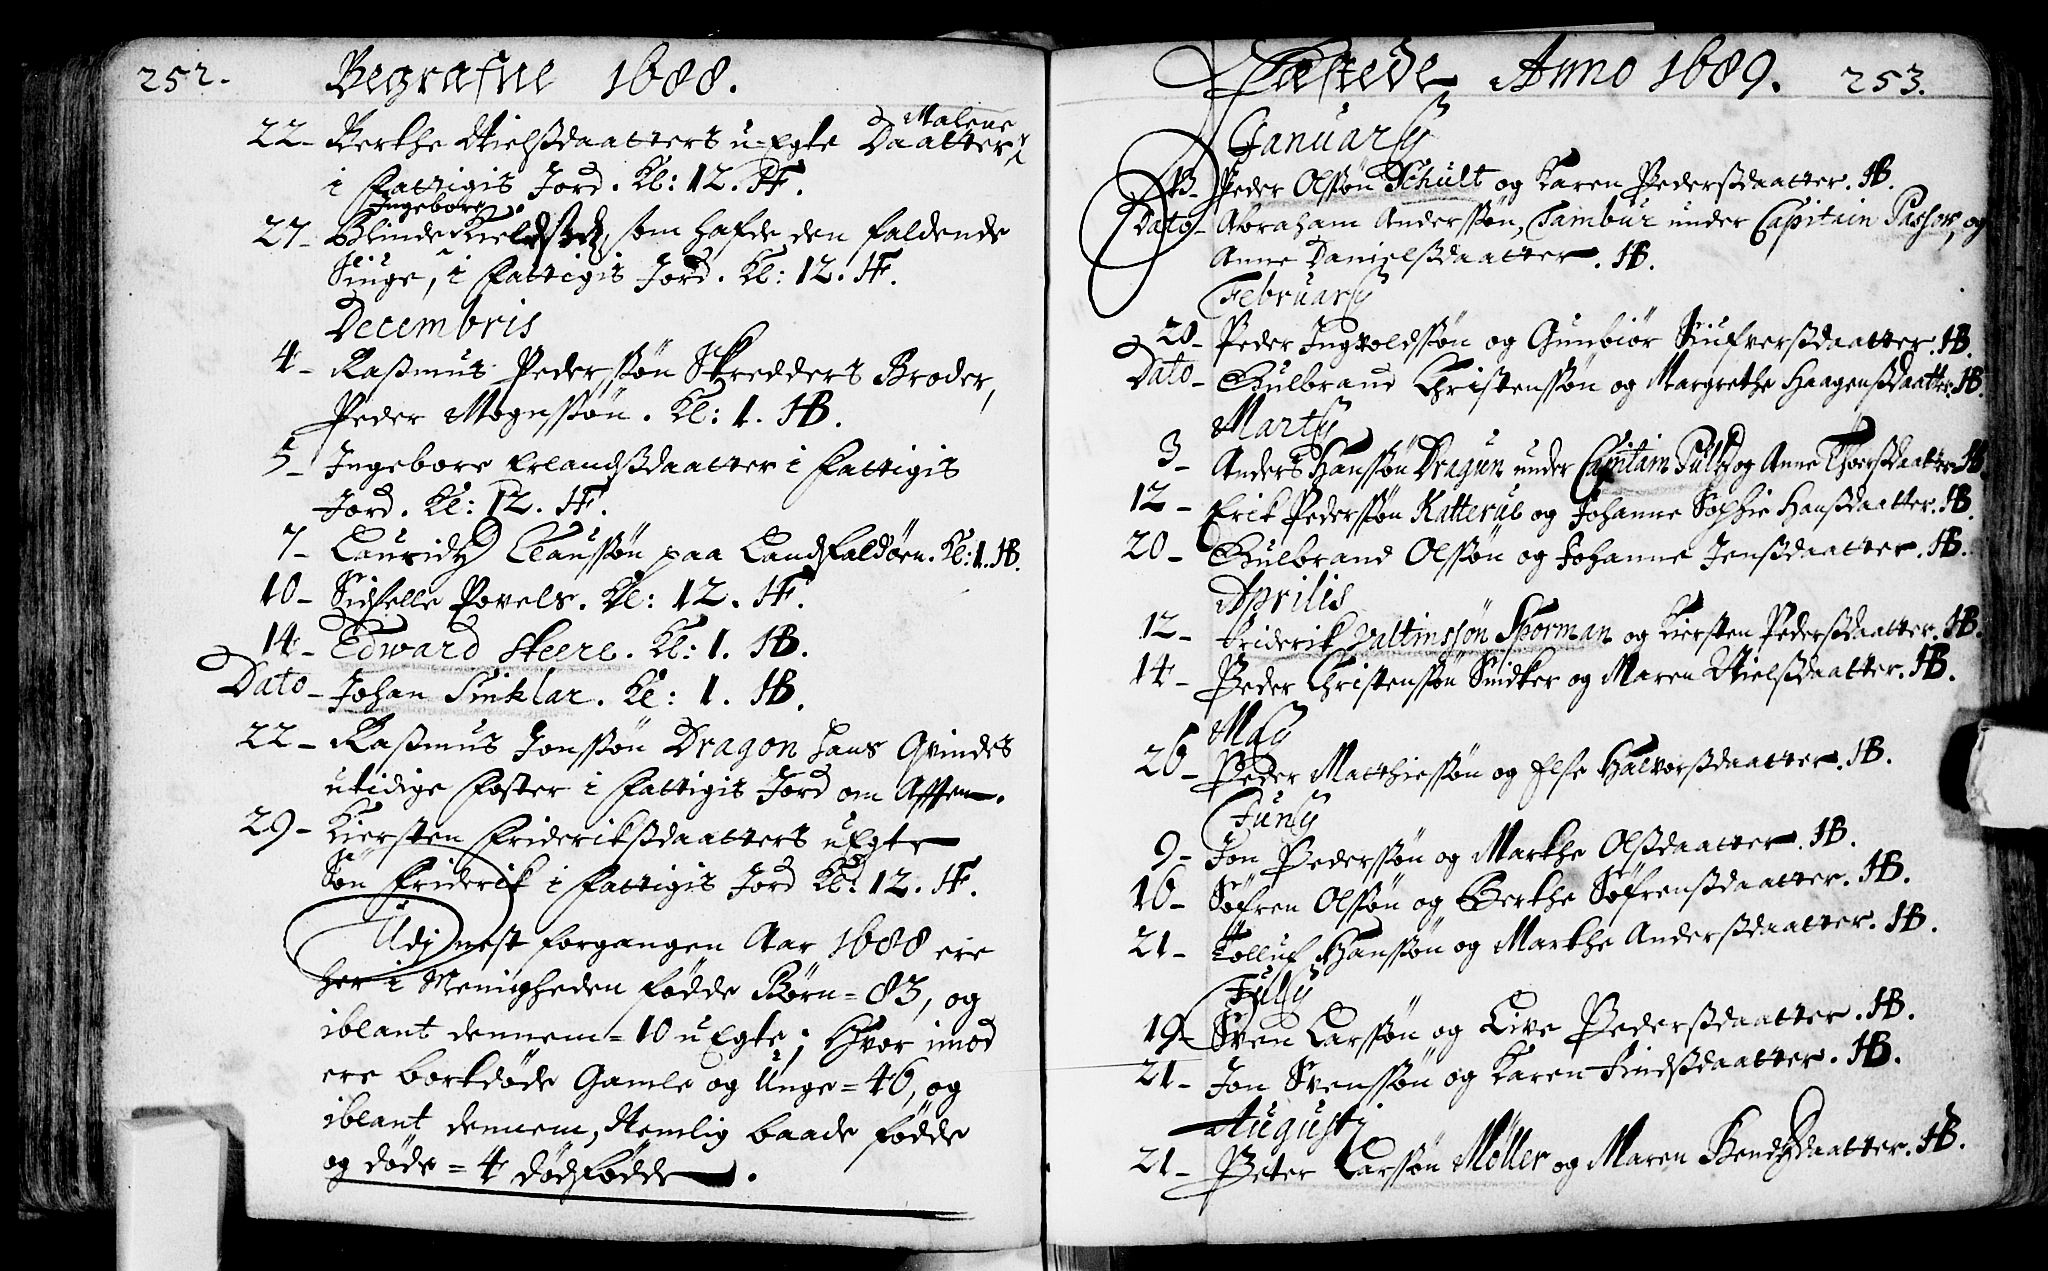 252. Begrafne 1688.
22- Berthe Nielsdaatters u-Egte Daatter Malene
i Fattigis Jord. Kl: 12. HF.
27- Blinde Ingebore som hafde den faldende
Siuge, i Fattigis Jord. Kl: 12. HF.
Decembris
4- Rasmus Pederssøn Skredders Broder,
Peder Mognssøn. Kl: 1. HB.
5- Ingebore Erlandsdaatter i Fattigis
Jord. Kl: 12. HF.
7- Lauridz Claussøn paa Landfaldøen. Kl: 1. HB.
10- Sidselle Povels. Kl: 12. HF.
14- Edward Steere. Kl: 1. HB.
Dato- Johan Sinklar. Kl: 1. HB.
22- Rasmus Jonssøn Dragon hans Qvindes
utidige Foster i Fattigis Jord om Afften.
29- Kiersten Frideriksdaatters uEgte
Søn Friderik i Fattigis Jord Kl: 12. HF.
Udj nest forgangen Aar 1688 ere
her i Menigheden fødde Børn = 83, og
iblant dennem = 10 uEgte; Hvor imod
ere bortdøde Gamle og Unge = 46, og
iblant dennem, Nemlig baade fødde
og døde = 4 dødfødde.
Fæstede Anno 1689. 253.
Januarij
13- Peder Olssøn Schult og Karen Pedersdaatter. HB.
Dato- Abraham Anderssøn, Tambur under Capitain Passow, og
Anne Danielsdaatter. HB.
Februarij
20- Peder Ingvoldssøn og Gunbiør Siufversdaatter. HB.
Dato- Gulbrand Christenssøn og Margrethe Haagensdaatter. HB.
Martij
3- Anders Hanssøn Dragun under Capitain og Anne Thorsdaatter HB
12- Erik Pederssøn Katterub og Johanne Sophie Hansdaatter. HB.
20- Gulbrand Olssøn og Johanne Jensdaatter. HB.
Aprilis
12- Friderik Valtinssøn Skorman og Kiersten Pedersdaatter. HB.
14- Peder Christenssøn Snidker og Maren Nielsdaatter. HB.
Maij
26- Peder Matthiessøn og Else Halvorsdaatter. HB.
Junij
9- Jon Pederssøn og Marthe Olsdaatter. HB.
16- Søfren Olssøn og Berthe Søfrensdaatter. HB.
21- Tolluf Hanssøn og Marthe Andersdaatter. HB.
Julij
19- Sven Larssøn og Live Pedersdaatter. HB.
21- Jon Svenssøn og Karen Findsdaatter. HB.
Augustj
21- Peter Larssøn Møller og Maren Bendzdaatter. HB.